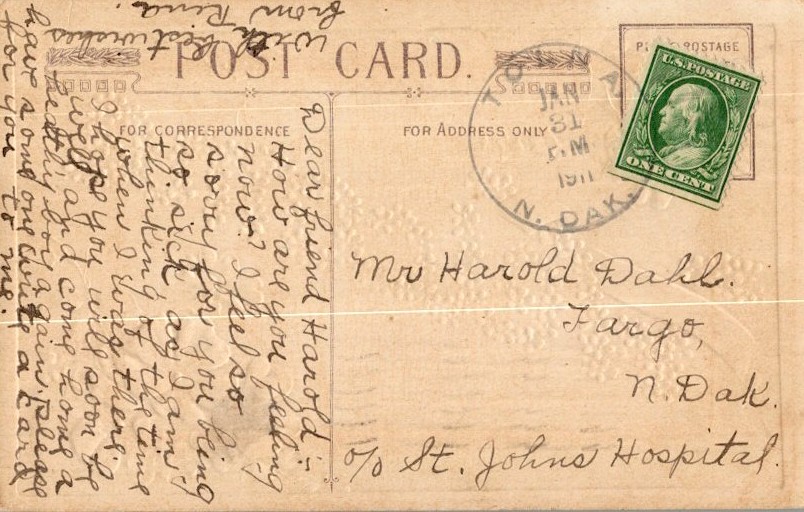 POST CARD.
FOR CORRESPONDENCE
FOR ADDRESS ONLY
PLACE POSTAGE
TOWNA
JAN
31
P.M.
1911
N. DAK.
U.S. POSTAGE
ONE CENT
Mr Harold Dahl.
Fargo,
N. Dak.
c/o St. Johns Hospital.
Dear friend Harold :-
How are you feeling
now? I feel so
sorry for you being
so sick as I am
thinking of the time
when I was there.
I hope you will soon be
well and come home a
healthy boy again. please
have some one write a card
for you to me.
With best wishes
from Rena.